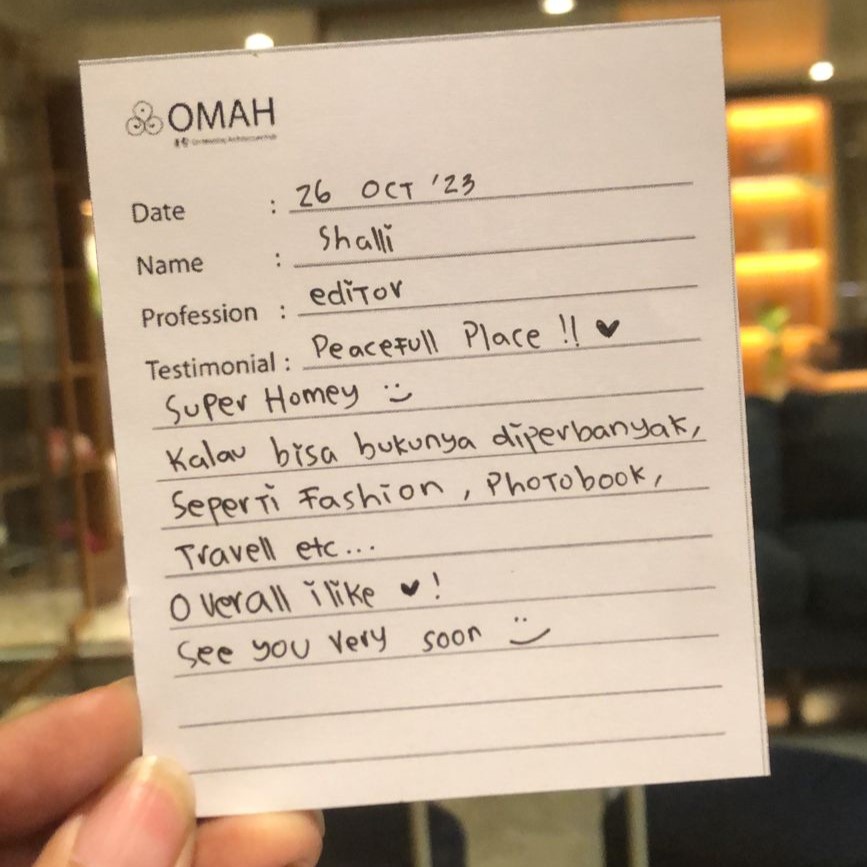 OMAH
Date : 26 OCT '23
Name : Shalli
Profession : editor
Testimonial : Peacefull Place !! ♥
Super Homey :)
Kalau bisa bukunya diperbanyak,
Seperti Fashion , Photobook,
Travell etc...
Overall i like ♥ !
See you very soon :)